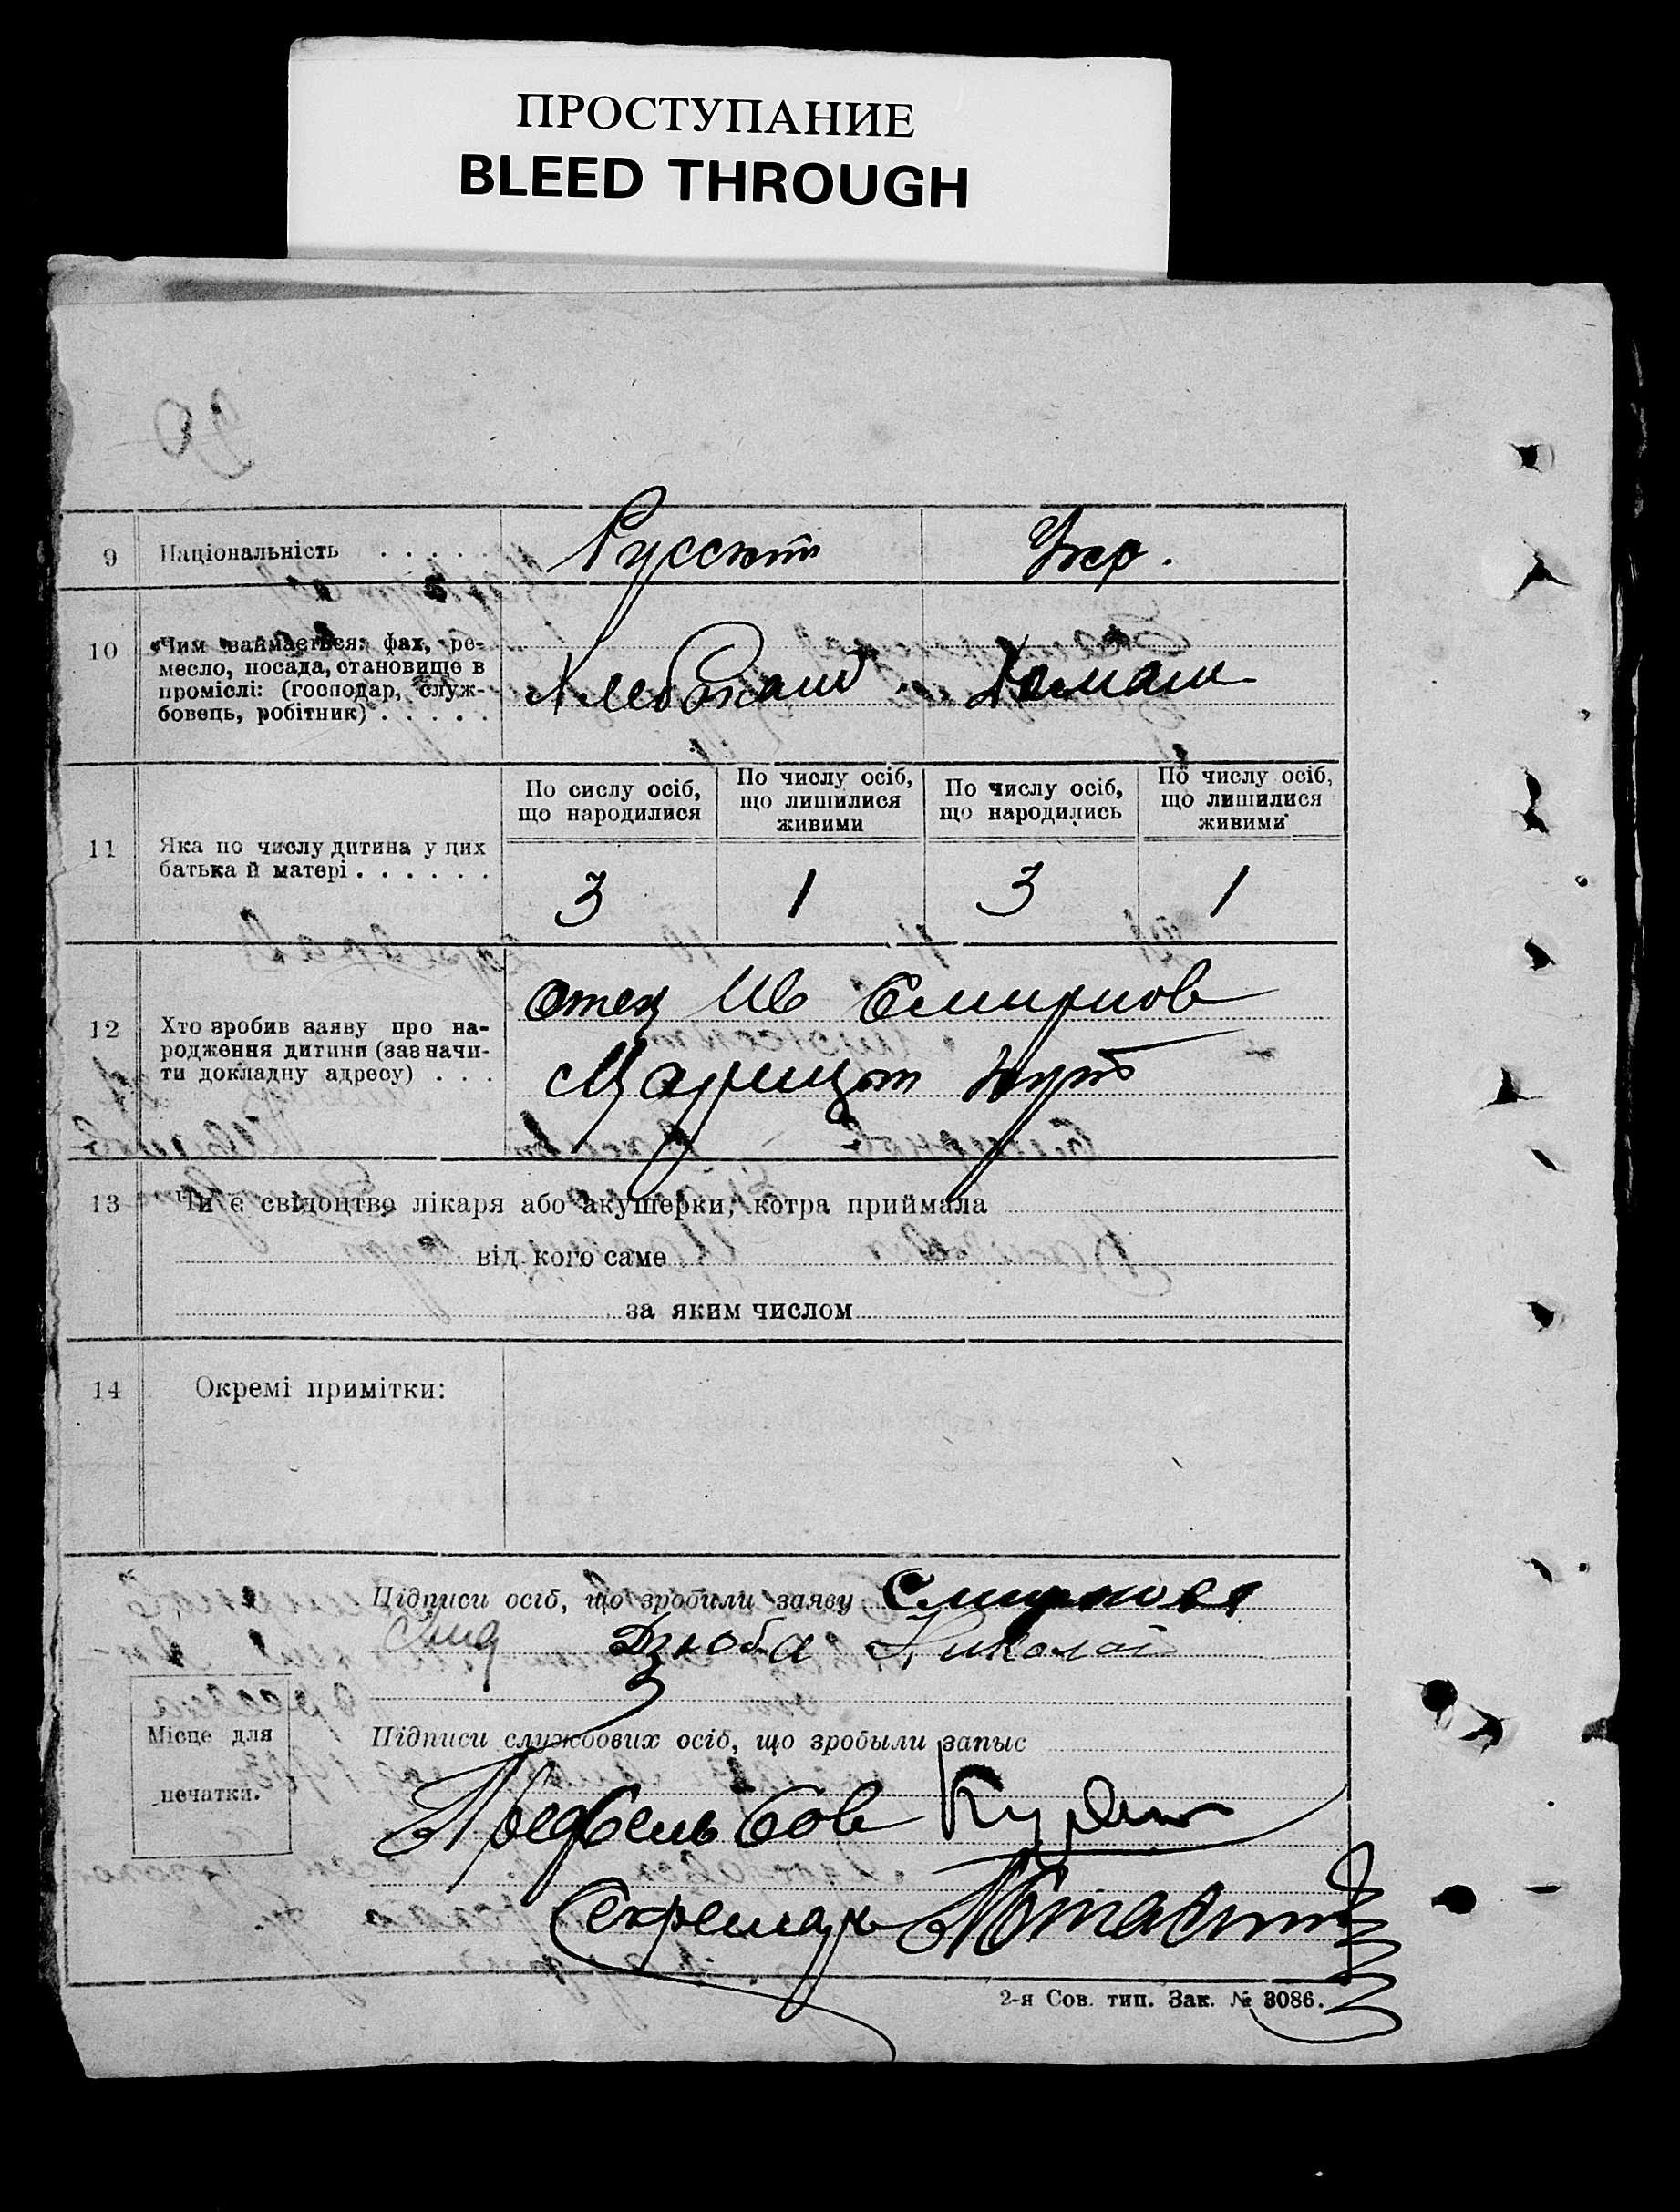 ПРОСТУПАНИЕ
BLEED THROUGH
9 Національність . . . . . Русский Укр.
10 Чим займається: фах, ре-
месло, посада, становище в
проміслі: (господар, служ-
бовець, робітник) . . . . .
Хлебопаш Домаш
11 Яка по числу дитина у цих
батька й матері . . . . . .
По сислу осіб,
що народилися
По числу осіб,
що лишилися
живими
По числу осіб,
що народились
По числу осіб,
що лишилися
живими
3 1 3 1
12 Хто зробив заяву про на-
родження дитини (зазначи-
ти докладну адресу) . . .
Отец Ив Смирнов
Царицын кут
13 Чи є свідоцтво лікаря або акушерки, котра приймала
від кого саме
за яким числом
14 Окремі примітки:
Підписи осіб, що зробили заяву Смирнов
Дзюба Николай
Місце для
печатки.
Підписи службових осіб, що зробыли запыс
Предсель Сов
Секретарь
2-я Сов. тип. Зак. № 3086.